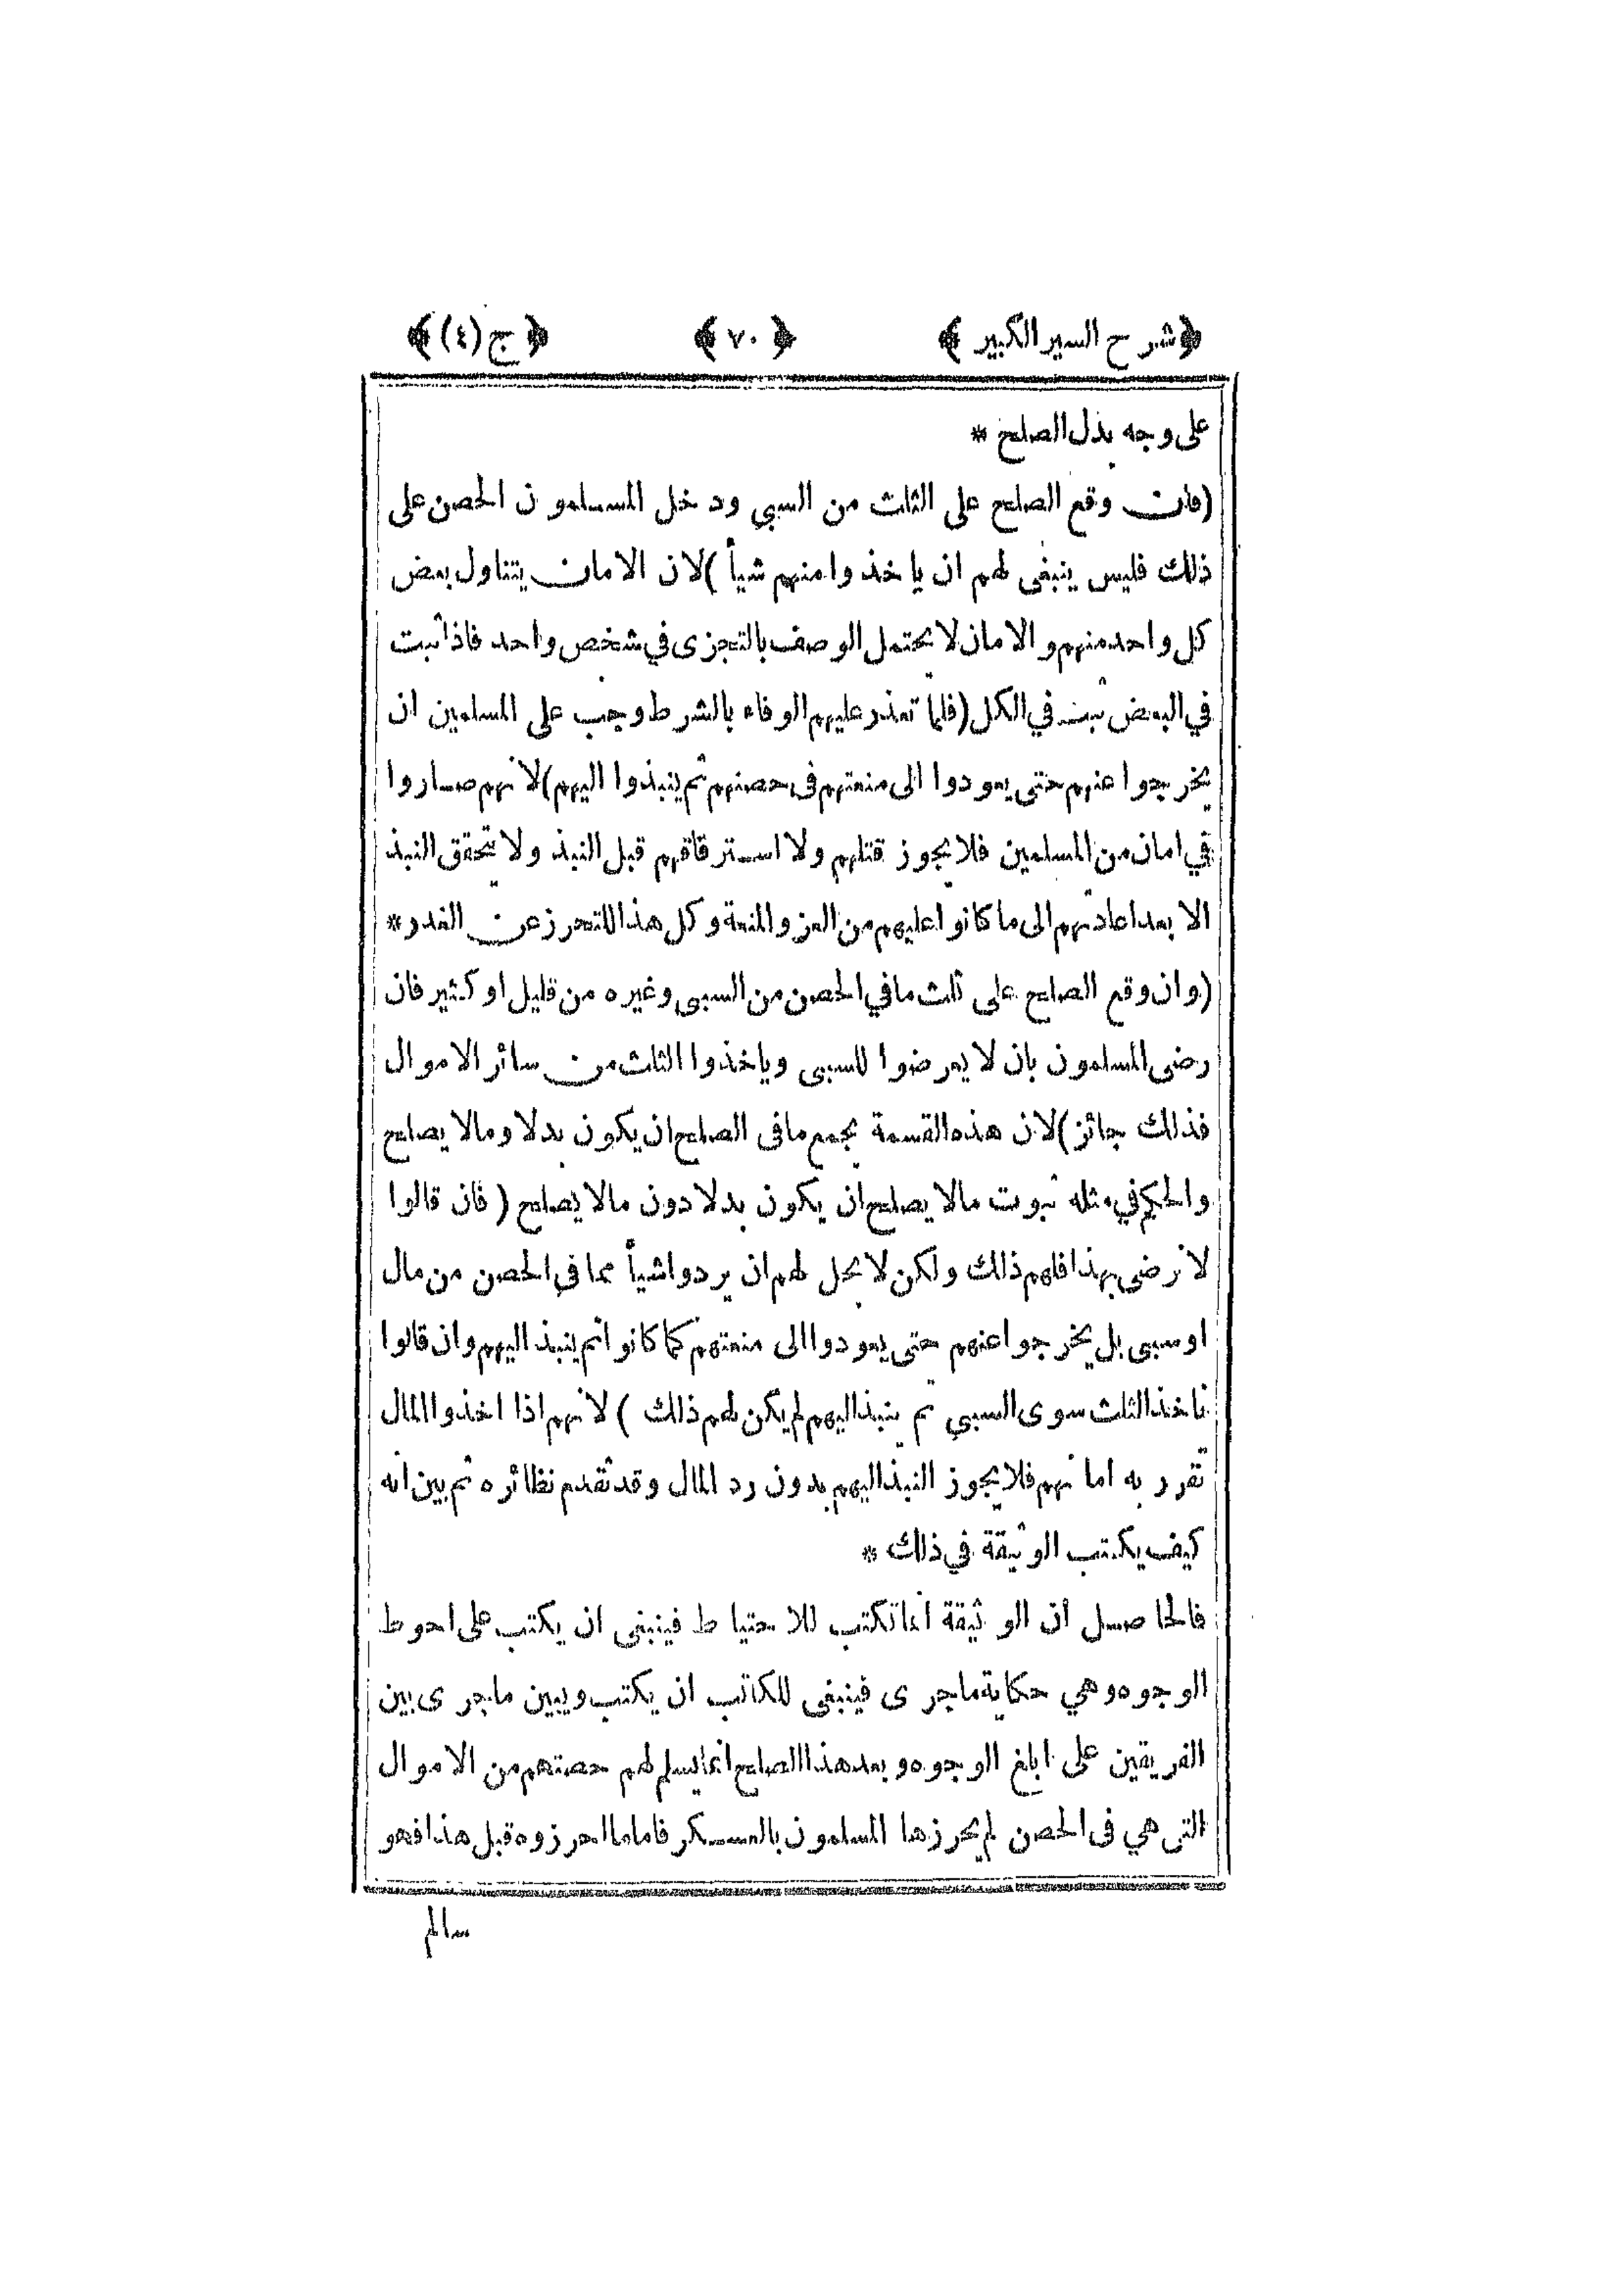 ﴿شرح السير الكبير﴾ ﴿٧٠﴾ ﴿ج(٤)﴾
على وجه بدل الصلح *
(فان وقع الصلح على الثلث من السبي ودخل المسلمون الحصن على
ذلك فليس ينبغى لهم ان ياخذوا منهم شيأ) لان الامان يتناول بعض
كل واحد منهم والامان لا يحتمل الوصف بالتجزى في شخص واحد فاذا ثبت
في البعض ثبت في الكل (فلما تعذر عليهم الوفاء بالشرط وجب على المسلمين ان
يخرجوا عنهم حتى يعودوا الى منعتهم فى حصنهم ثم ينبذوا اليهم) لانهم صاروا
في امان من المسلمين فلا يجوز قتلهم ولا استرقاقهم قبل النبذ ولا تحقق النبذ
الا بعد اعادتهم الى ما كانوا عليهم من العز والمنعة وكل هذا للتحرز عن الغدر *
(وان وقع الصلح على ثلث ما في الحصن من السبى وغيره من قليل او كثير فان
رضى المسلمون بان لا يعرضوا للسبى وياخذوا الثلث من سائر الاموال
فذلك جائز) لان هذه القسمة بجمع ما فى الصلح ان يكون بدلا وما لا يصلح
والحكم في مثله ثبوت مالا يصلح ان يكون بدلا دون مالا يصلح (فان قالوا
لا نرضى بهذا فلهم ذلك ولكن لا يحل لهم ان يردوا شيأ مما في الحصن من مال
او سبى بل يخرجوا عنهم حتى يعودوا الى منعتهم كما كانوا ثم ينبذ اليهم وان قالوا
ناخذ الثلث سوى السبي ثم ينبذ اليهم لم يكن لهم ذلك) لانهم اذا اخذوا المال
تقرر به امانهم فلا يجوز النبذ اليهم بدون رد المال وقد تقدم نظائره ثم بين انه
كيف يكتب الوثيقة في ذلك *
فالحاصل ان الوثيقة انما تكتب للاحتياط فينبغى ان يكتب على احوط
الوجوه وهي حكاية ما جرى فينبغى للكاتب ان يكتب ويبين ما جرى بين
الفريقين على ابلغ الوجوه وبعد هذا الصلح انما يسلم لهم حصتهم من الاموال
التى هي فى الحصن لم يحرزها المسلمون بالعسكر فاما ما احرزوه قبل هذا فهو
سالم